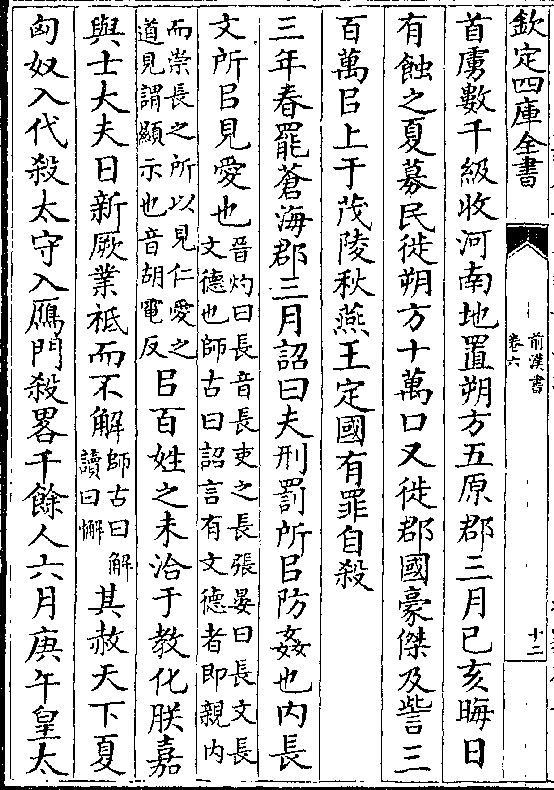 欽定四庫全書
前漢書
卷六
十二
首虜數千級收河南地置朔方五原郡三月己亥晦日
有蝕之夏募民徙朔方十萬口又徙郡國豪傑及訾三
百萬㠯上于茂陵秋燕王定國有罪自殺
三年春罷蒼海郡三月詔曰夫刑罰所㠯防姦也内長
文所㠯見愛也
晉灼曰長音長吏之長張晏曰長文長
文德也師古曰詔言有文德者即親内
而崇長之所以見仁愛之
道見謂顯示也音胡電反
㠯百姓之未洽于教化朕嘉
與士大夫日新厥業祗而不解
師古曰解
讀曰懈
其赦天下夏
匈奴入代殺太守入鴈門殺畧千餘人六月庚午皇太